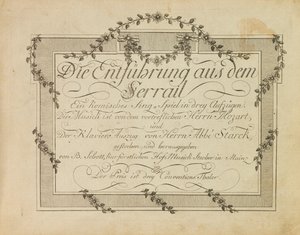 Die Entführung aus dem
Serrail
Ein komisches Sing-Spiel in drey Aufzügen.
Die Musick ist von dem vortreflichen Herrn Mozart,
und
Der Klavier Auszug vom Herrn Abbé Starck
gestochen und herausgegeben
von B. Schott, kurfürstlichen Hof Musick Stecher in Mainz
Der Preis ist drey Conventions Thaler